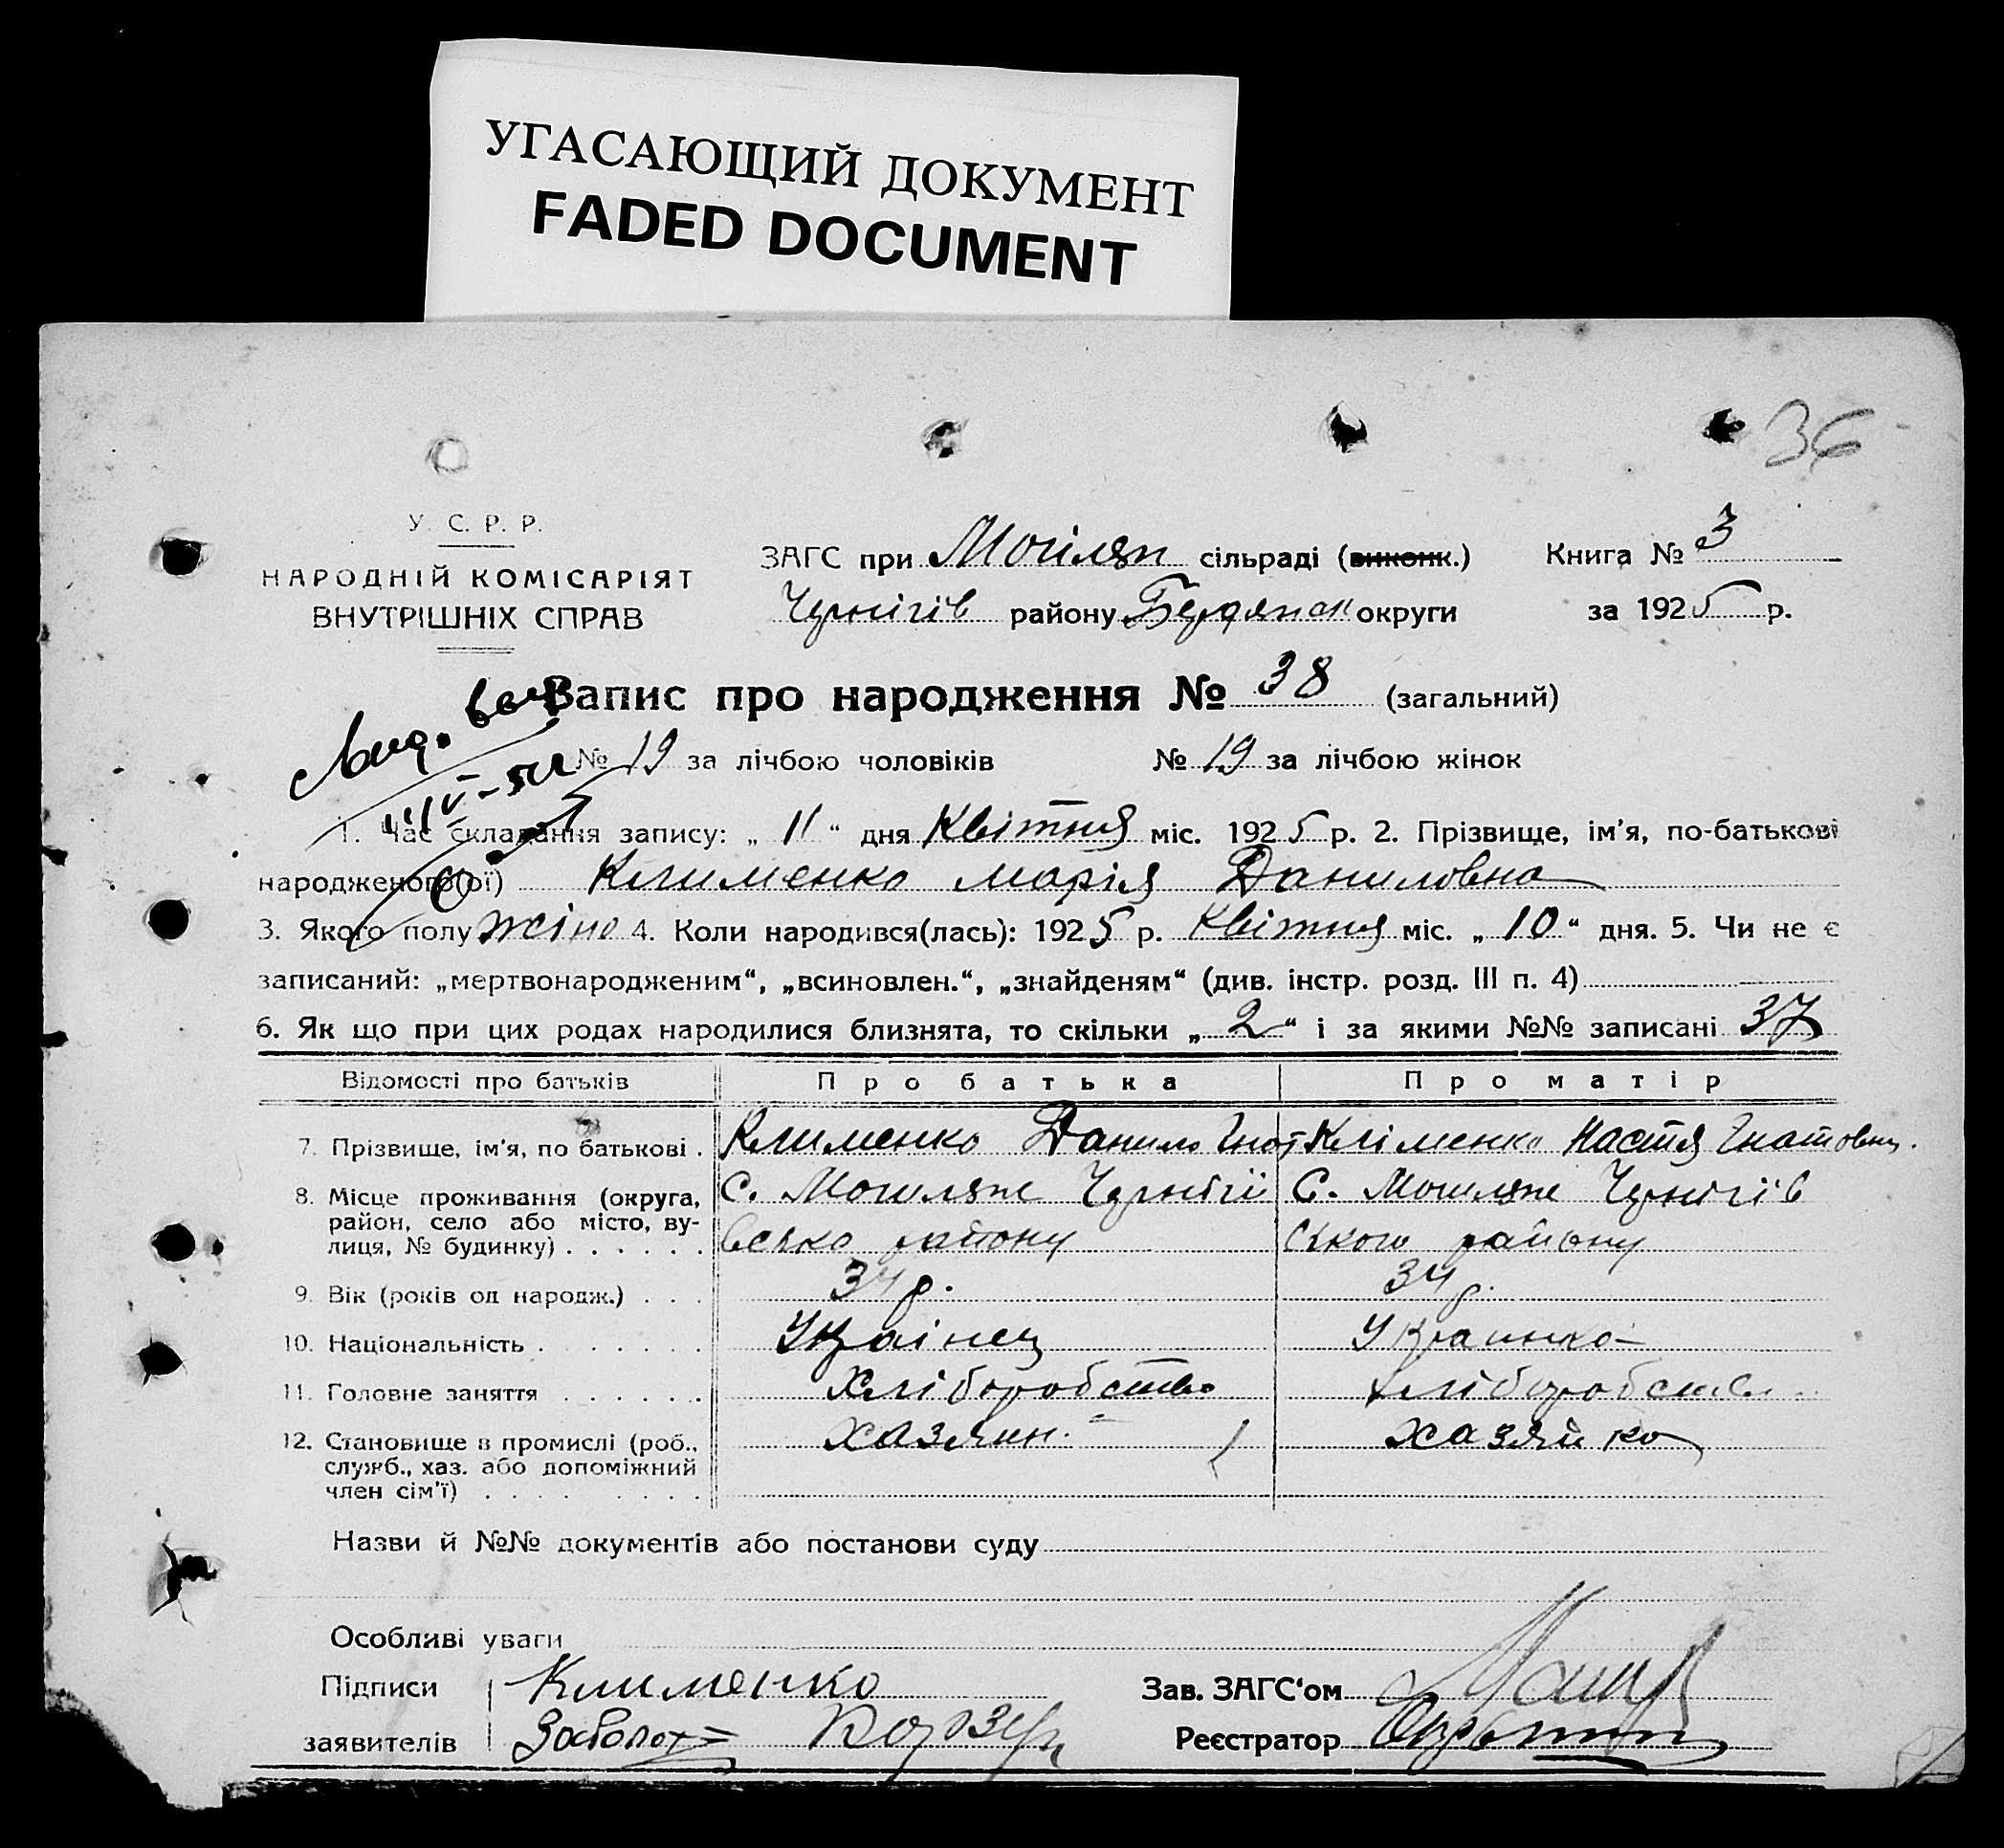 УГАСАЮЩИЙ ДОКУМЕНТ
FADED DOCUMENT
36
У. С. Р. Р.
НАРОДНІЙ КОМІСАРІЯТ
ВНУТРІШНІХ СПРАВ
ЗАГС при Могилян сільраді (виконк.)
Чернігів району Бердянск округи
Книга № 3
за 1925 р.
Запис про народження № 38 (загальний)
№ 19 за лічбою чоловіків № 19 за лічбою жінок
1. Час складання запису: „ 11 “ дня Квітня міс. 1925 р. 2. Прізвище, ім'я, по-батькові
народженого(ої) Клименко Марія Даниловна
3. Якого полу жіно 4. Коли народився(лась): 1925 р. Квітня міс. „ 10 “ дня. 5. Чи не є
записаний: „мертвонародженим“, „всиновлен.“, „знайденям“ (див. інстр. розд. III п. 4)
6. Як що при цих родах народилися близнята, то скільки „ 2 “ і за якими №№ записані 37
Відомості про батьків Про батька Про матір
7. Прізвище, ім'я, по батькові . Клименко Данило Гнат Кліменко Настя Гнатовна.
8. Місце проживання (округа, район, село або місто, вулиця, № будинку) . . . . . . С. Могиляне Чернігі
всько району
С. Могиляне Чернігів
ського району
9. Вік (років од народж.) . . . 34 р. 34 р.
10. Національність . . . . . . . Украінец Украинка
11. Головне заняття . . . . . . Хліборобство хліборобство
12. Становище в промислі (роб., служб., хаз. або допоміжний член сім'ї) . . . . . . . . . Хазяин. хазяйка
Назви й №№ документів або постанови суду
Особливі уваги
Підписи
заявителів
Клименко
Заболот
Зав. ЗАГС'ом
Реєстратор